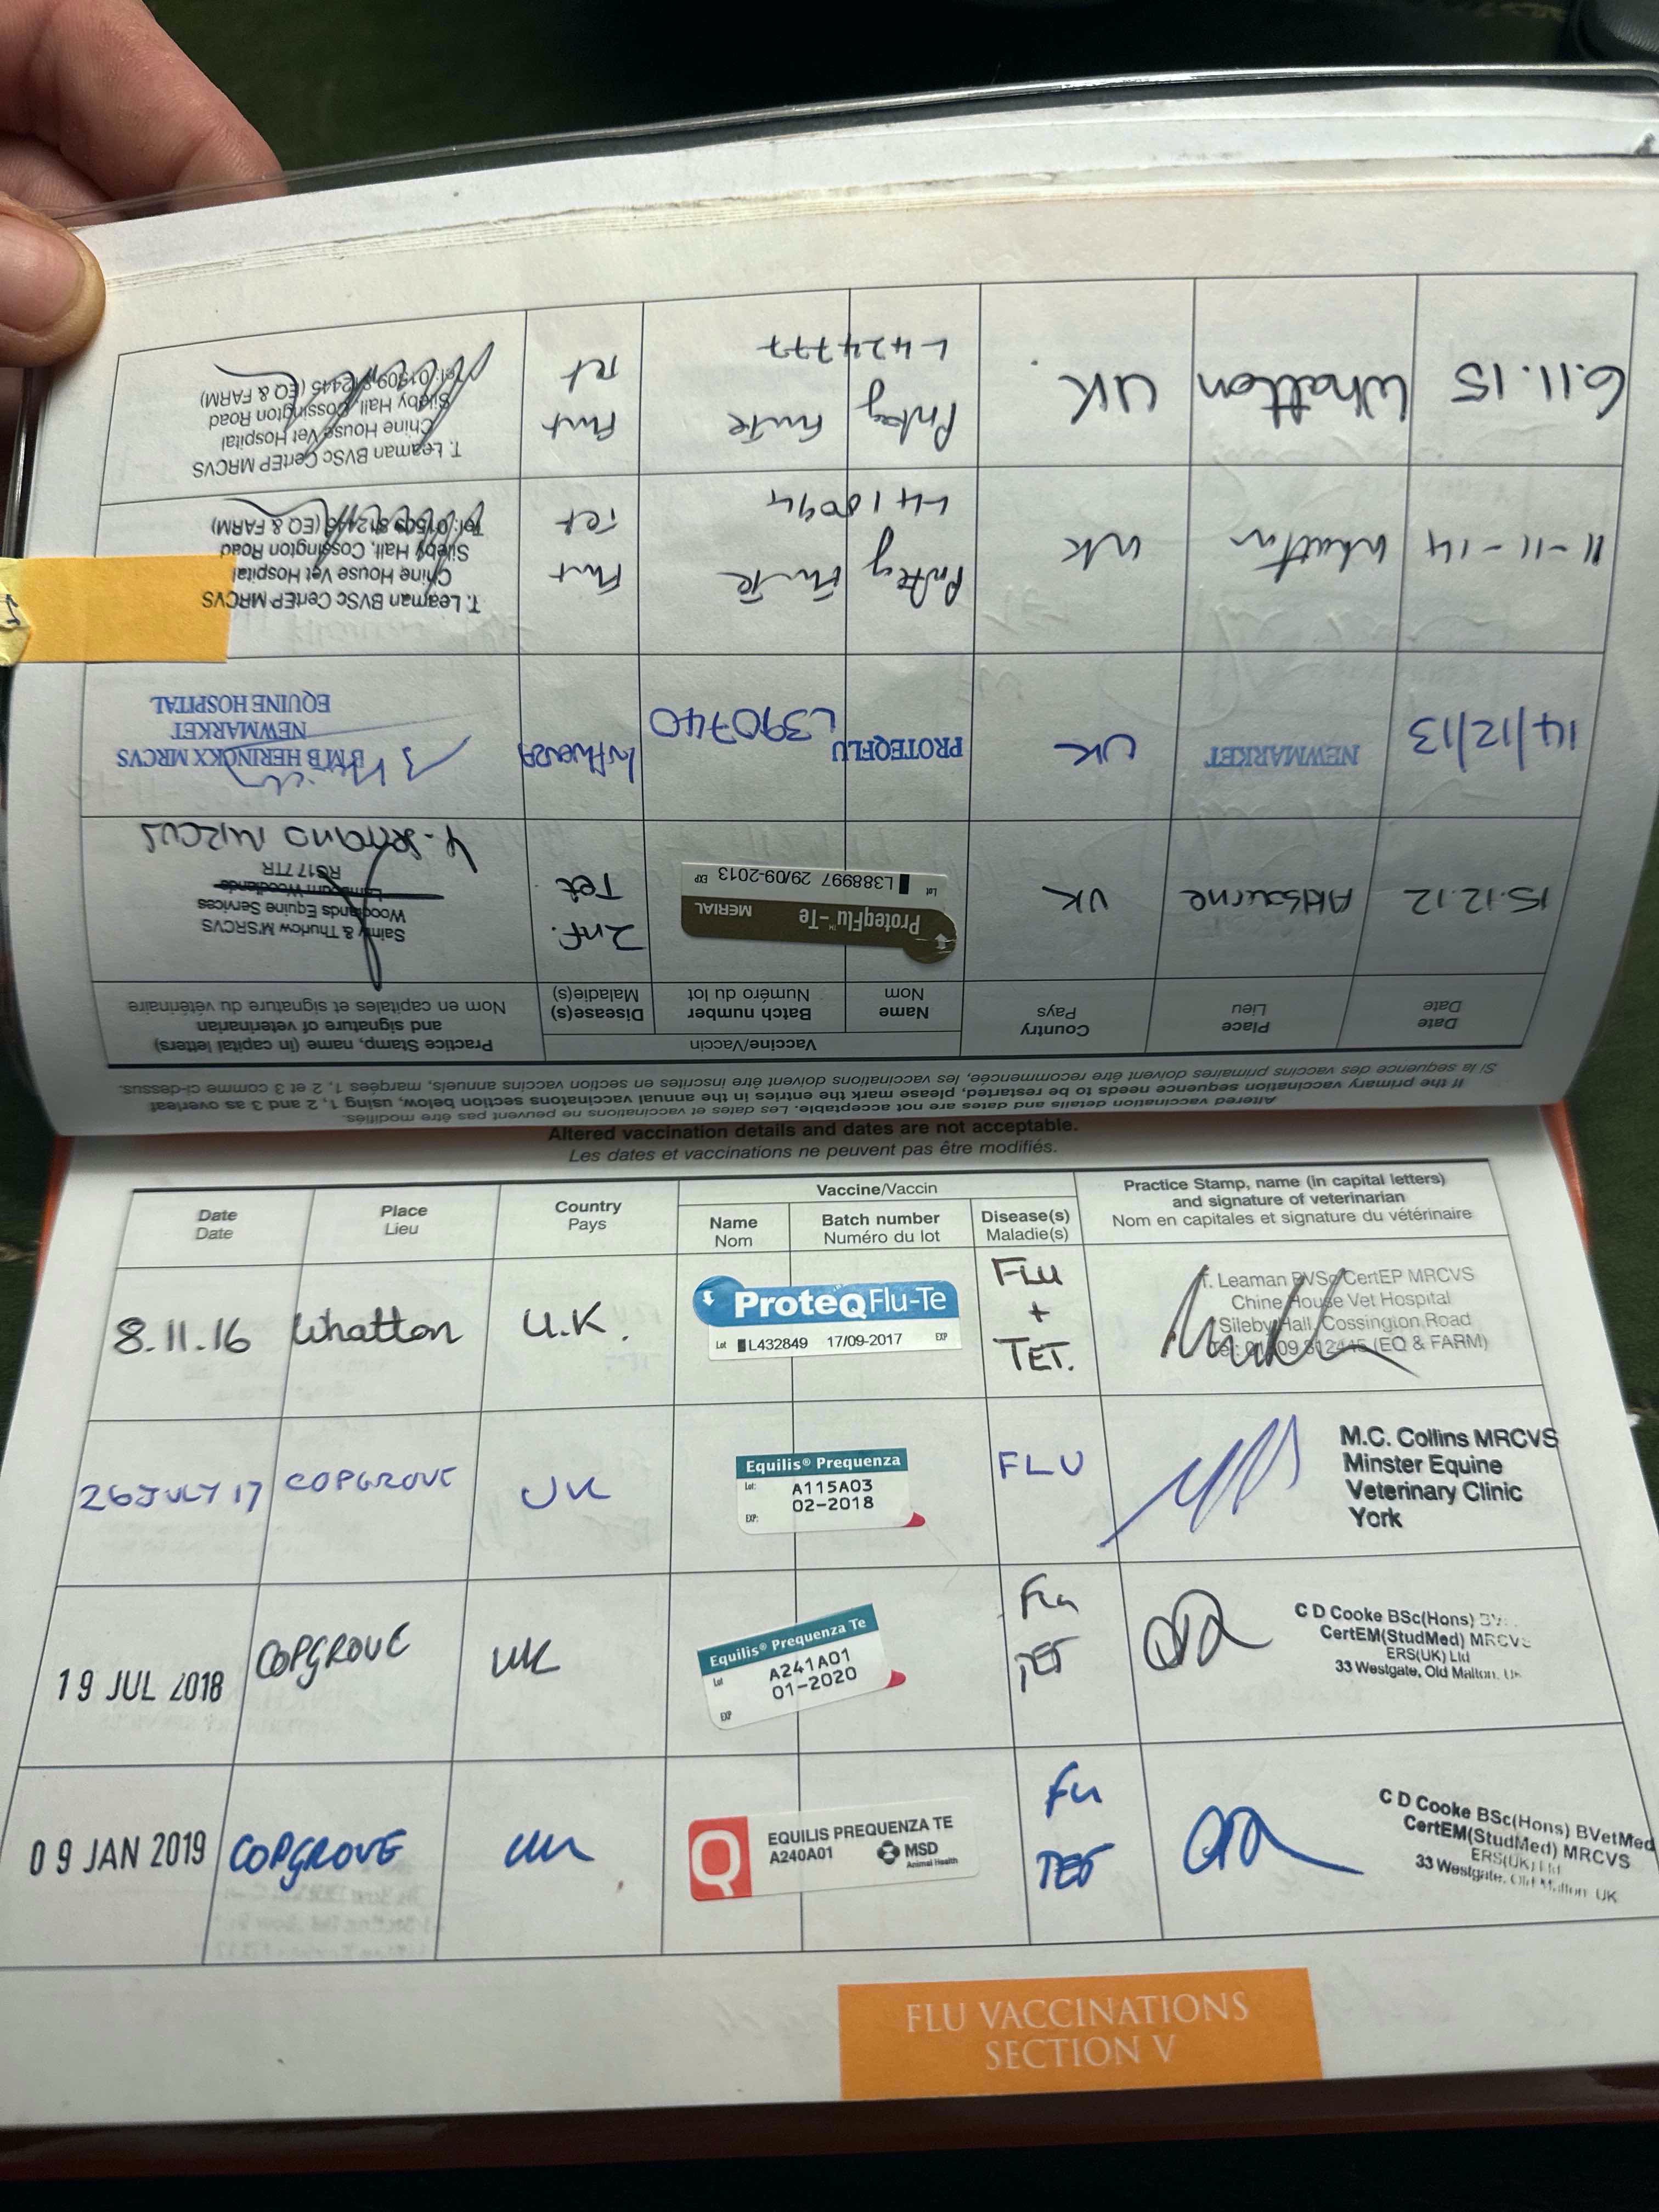 Altered vaccination details and dates are not acceptable. Les dates et vaccinations ne peuvent pas être modifiés.
If the primary vaccination sequence needs to be restarted, please mark the entries in the annual vaccinations section below, using 1, 2 and 3 as overleaf
Si la sequence des vaccins primaires doivent être recommencée, les vaccinations doivent être inscrites en section vaccins annuels, marqées 1, 2 et 3 comme ci-dessus.
Date
Date
Place
Lieu
Country
Pays
Vaccine/Vaccin
Name
Nom
Batch number
Numéro du lot
Disease(s)
Maladie(s)
Practice Stamp, name (in capital letters)
and signature of veterinarian
Nom en capitales et signature du vétérinaire
15.12.12
UK
ProteqFlu-Te™ MERIAL
Lot L388997 29/09-2013 EXP
Inf.
Tet
Woodlands Equine Services
Lambourn Woodlands
RG17 7TR
MRCVS
14/12/13
NEWMARKET
UK
PROTEQFLU
L390740
Influenza
B M B HERINCKX MRCVS
NEWMARKET
EQUINE HOSPITAL
11-11-14
Whatton
UK
L418094
Tet
T. Leaman BVSc CertEP MRCVS
Chine House Vet Hospital
Sileby Hall, Cossington Road
Tel: 01509 812445 (EQ & FARM)
6.11.15
Whatton
UK
L424777
Tet
T. Leaman BVSc CertEP MRCVS
Chine House Vet Hospital
Sileby Hall, Cossington Road
Tel: 01509 812445 (EQ & FARM)
Altered vaccination details and dates are not acceptable.
Les dates et vaccinations ne peuvent pas être modifiés.
Date
Date
Place
Lieu
Country
Pays
Vaccine/Vaccin
Name
Nom
Batch number
Numéro du lot
Disease(s)
Maladie(s)
Practice Stamp, name (in capital letters)
and signature of veterinarian
Nom en capitales et signature du vétérinaire
8.11.16
Whatton
U.K.
ProteQFlu-Te
Lot L432849 17/09-2017 EXP
FLU
+
TET.
T. Leaman BVSc CertEP MRCVS
Chine House Vet Hospital
Sileby Hall, Cossington Road
Tel: 01509 812445 (EQ & FARM)
26 JULY 17
COPGROVE
UK
Equilis® Prequenza
Lot: A115A03
02-2018
EXP:
FLU
M.C. Collins MRCVS
Minster Equine
Veterinary Clinic
York
19 JUL 2018
COPGROVE
UK
Equilis® Prequenza Te
Lot A241A01
01-2020
EXP
Flu
TET
C D Cooke BSc(Hons)
CertEM(StudMed) MRCVS
ERS(UK) Ltd
33 Westgate, Old Malton, UK
09 JAN 2019
COPGROVE
UK
Q
EQUILIS PREQUENZA TE
A240A01
MSD
Animal Health
Flu
TET
C D Cooke BSc(Hons) BVetMed
CertEM(StudMed) MRCVS
ERS(UK) Ltd
33 Westgate, Old Malton UK
FLU VACCINATIONS
SECTION V